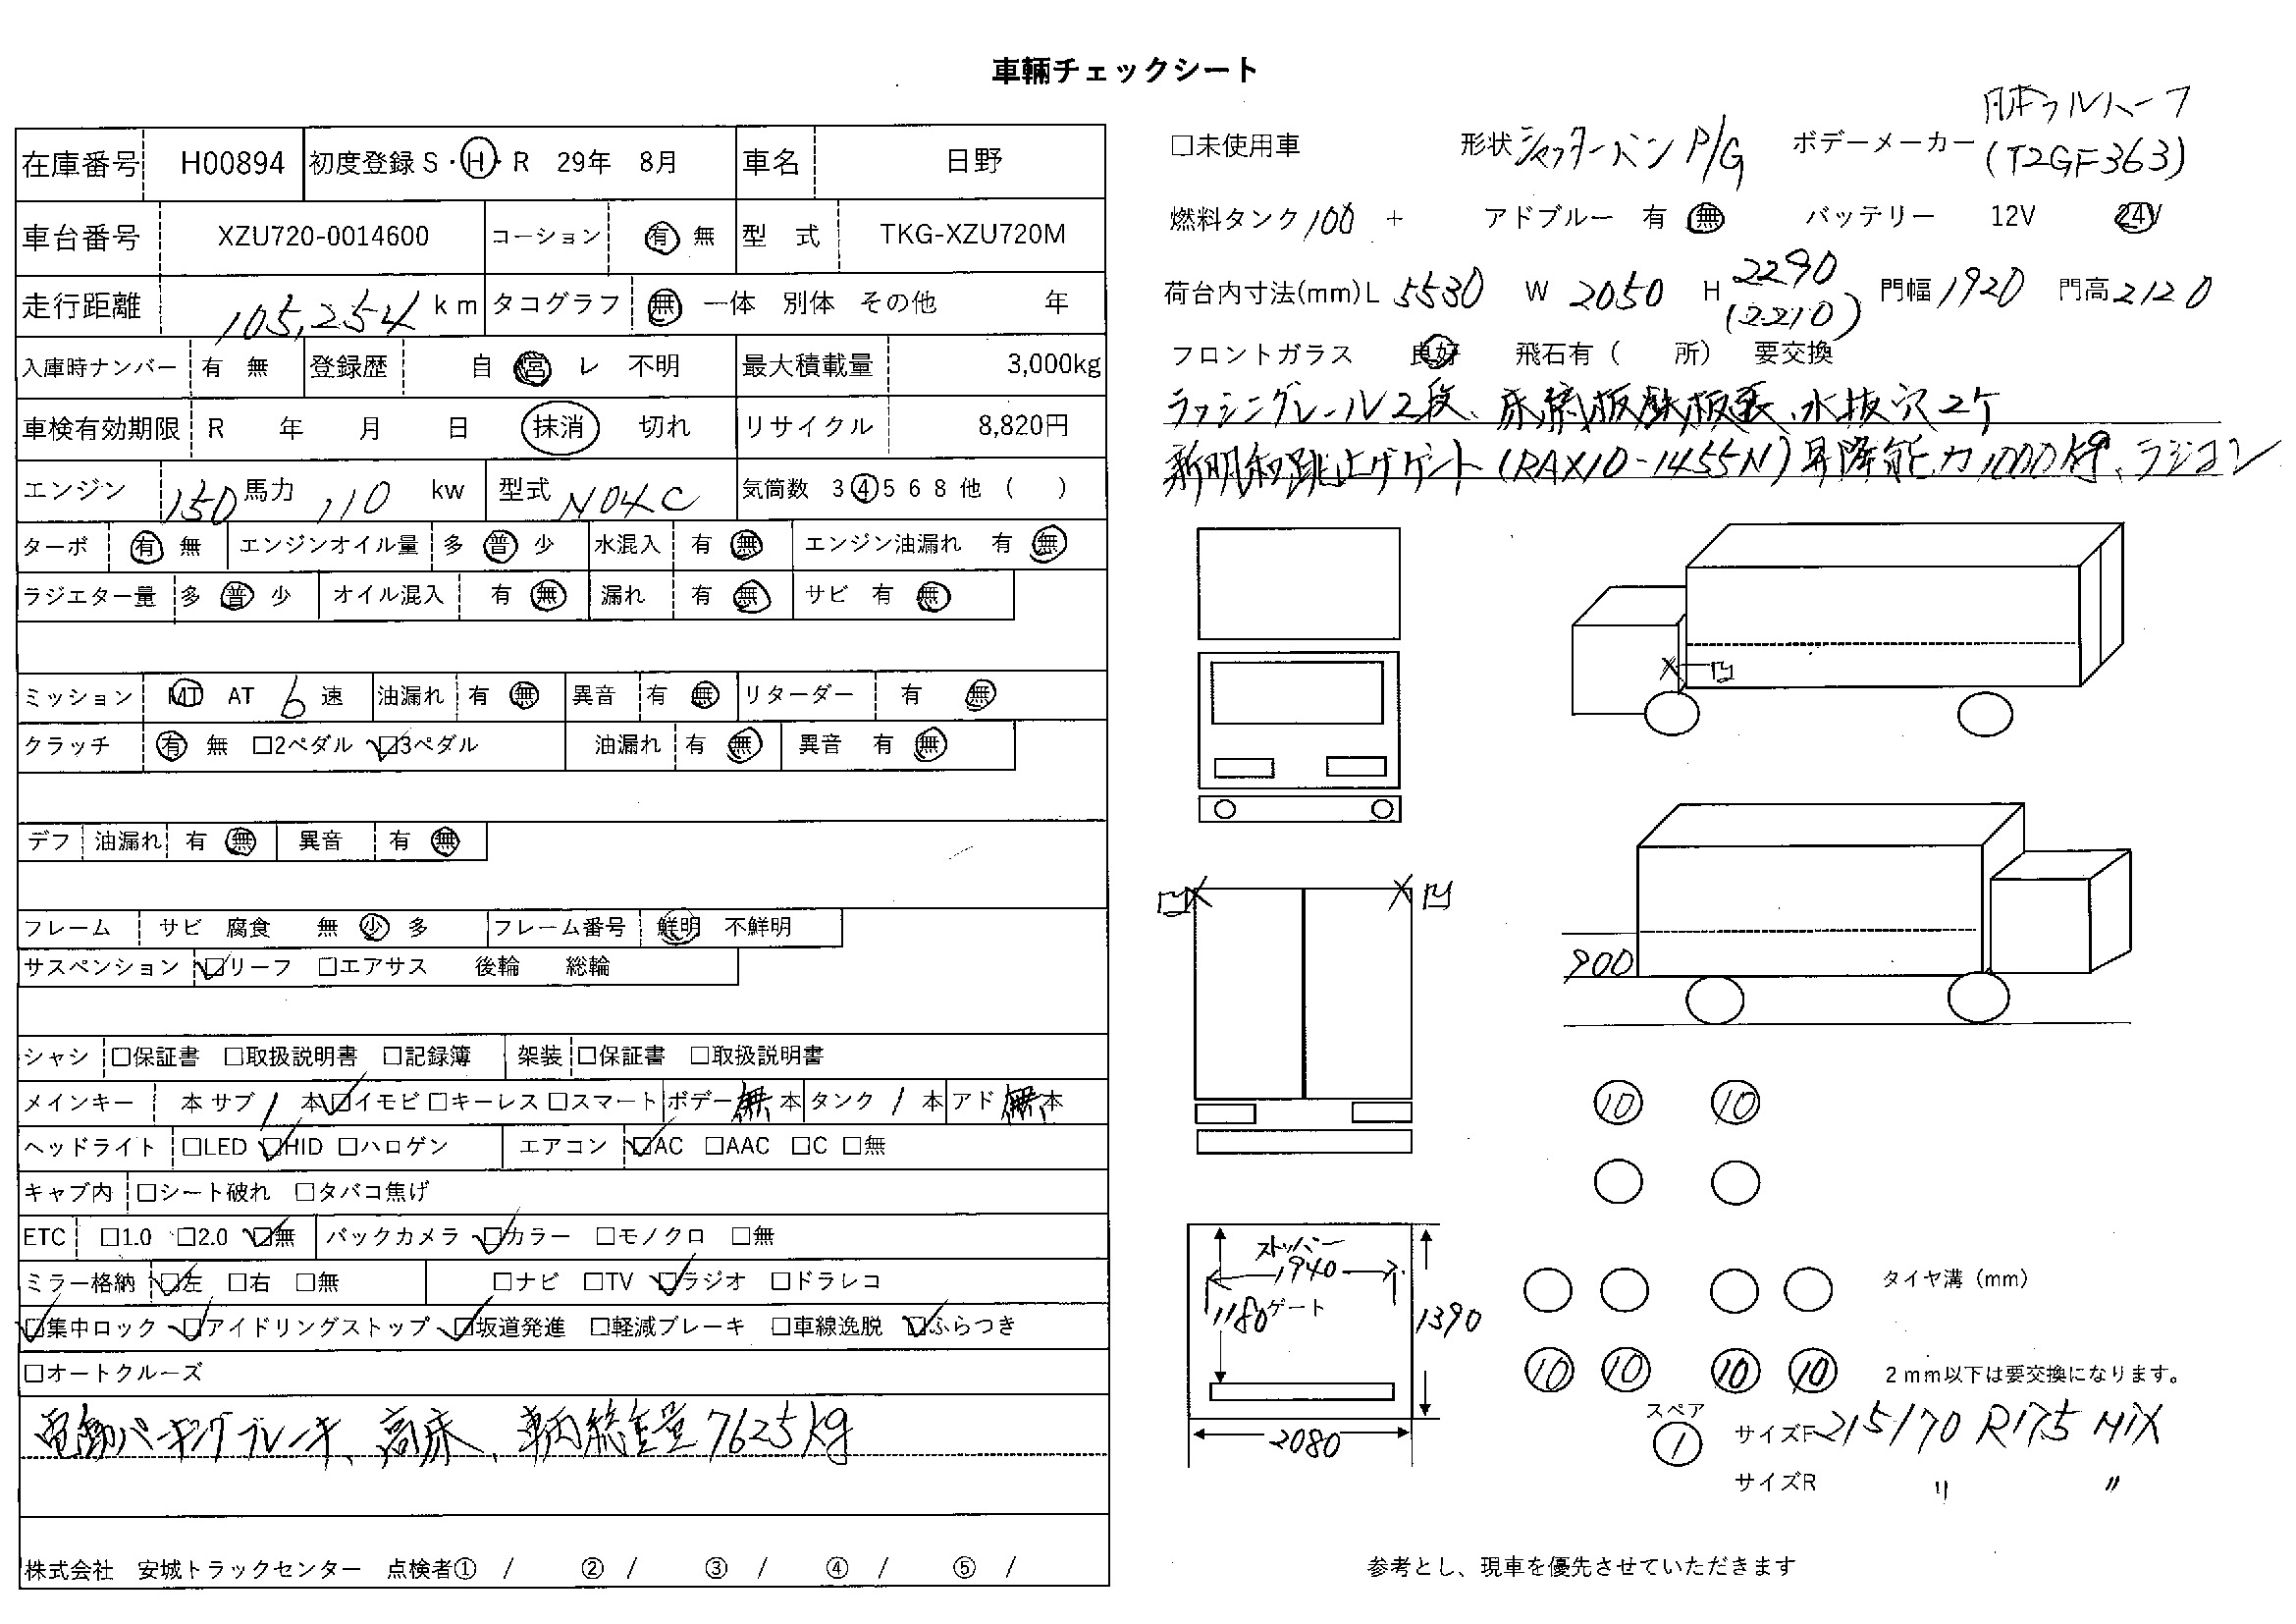 車輌チェックシート
在庫番号 H00894 初度登録 S・H・R 29年 8月 車名 日野
車台番号 XZU720-0014600 コーション 有 無 型 式 TKG-XZU720M
走行距離 105,254 km タコグラフ 無 一体 別体 その他 年
入庫時ナンバー 有 無 登録歴 自 営 レ 不明 最大積載量 3,000kg
車検有効期限 R 年 月 日 抹消 切れ リサイクル 8,820円
エンジン 150 馬力 110 kw 型式 N04C 気筒数 3 4 5 6 8 他 ( )
ターボ 有 無 エンジンオイル量 多 普 少 水混入 有 無 エンジン油漏れ 有 無
ラジエター量 多 普 少 オイル混入 有 無 漏れ 有 無 サビ 有 無
ミッション MT AT 6 速 油漏れ 有 無 異音 有 無 リターダー 有 無
クラッチ 有 無 □2ペダル ☑3ペダル 油漏れ 有 無 異音 有 無
デフ 油漏れ 有 無 異音 有 無
フレーム サビ 腐食 無 少 多 フレーム番号 鮮明 不鮮明
サスペンション ☑リーフ □エアサス 後輪 総輪
シャシ □保証書 □取扱説明書 □記録簿 架装 □保証書 □取扱説明書
メインキー 本 サブ 1 本 ☑イモビ □キーレス □スマート ボデー 無 本 タンク 1 本 アド 無 本
ヘッドライト □LED ☑HID □ハロゲン エアコン ☑AC □AAC □C □無
キャブ内 □シート破れ □タバコ焦げ
ETC □1.0 □2.0 ☑無 バックカメラ ☑カラー □モノクロ □無
ミラー格納 ☑左 □右 □無 □ナビ □TV ☑ラジオ □ドラレコ
☑集中ロック ☑アイドリングストップ ☑坂道発進 □軽減ブレーキ □車線逸脱 ☑ふらつき
□オートクルーズ
電動パーキングブレーキ、高床、車両総重量7625kg
株式会社 安城トラックセンター 点検者① / ② / ③ / ④ / ⑤ /
□未使用車 形状 シャッターバン P/G ボデーメーカー 日本フルハーフ
(T2GF363)
燃料タンク 100 + アドブルー 有 無 バッテリー 12V 24V
荷台内寸法(mm)L 5530 W 2050 H 2290 門幅 1920 門高 2120
(2210)
フロントガラス 良好 飛石有 ( 所) 要交換
ラッシングレール2段、床縞板鉄板張、水抜穴2ケ
新明和跳上げゲート(RAX10-1455N)昇降能力1000kg、ラジコン
X 凹
凹 X X 凹
900
10 10
ストッパー
1940
1180 ゲート
1390
2080
タイヤ溝 (mm)
10 10 10 10
2mm以下は要交換になります。
スペア
1
サイズF 215/70 R17.5 MIX
サイズR 〃 〃
参考とし、現車を優先させていただきます